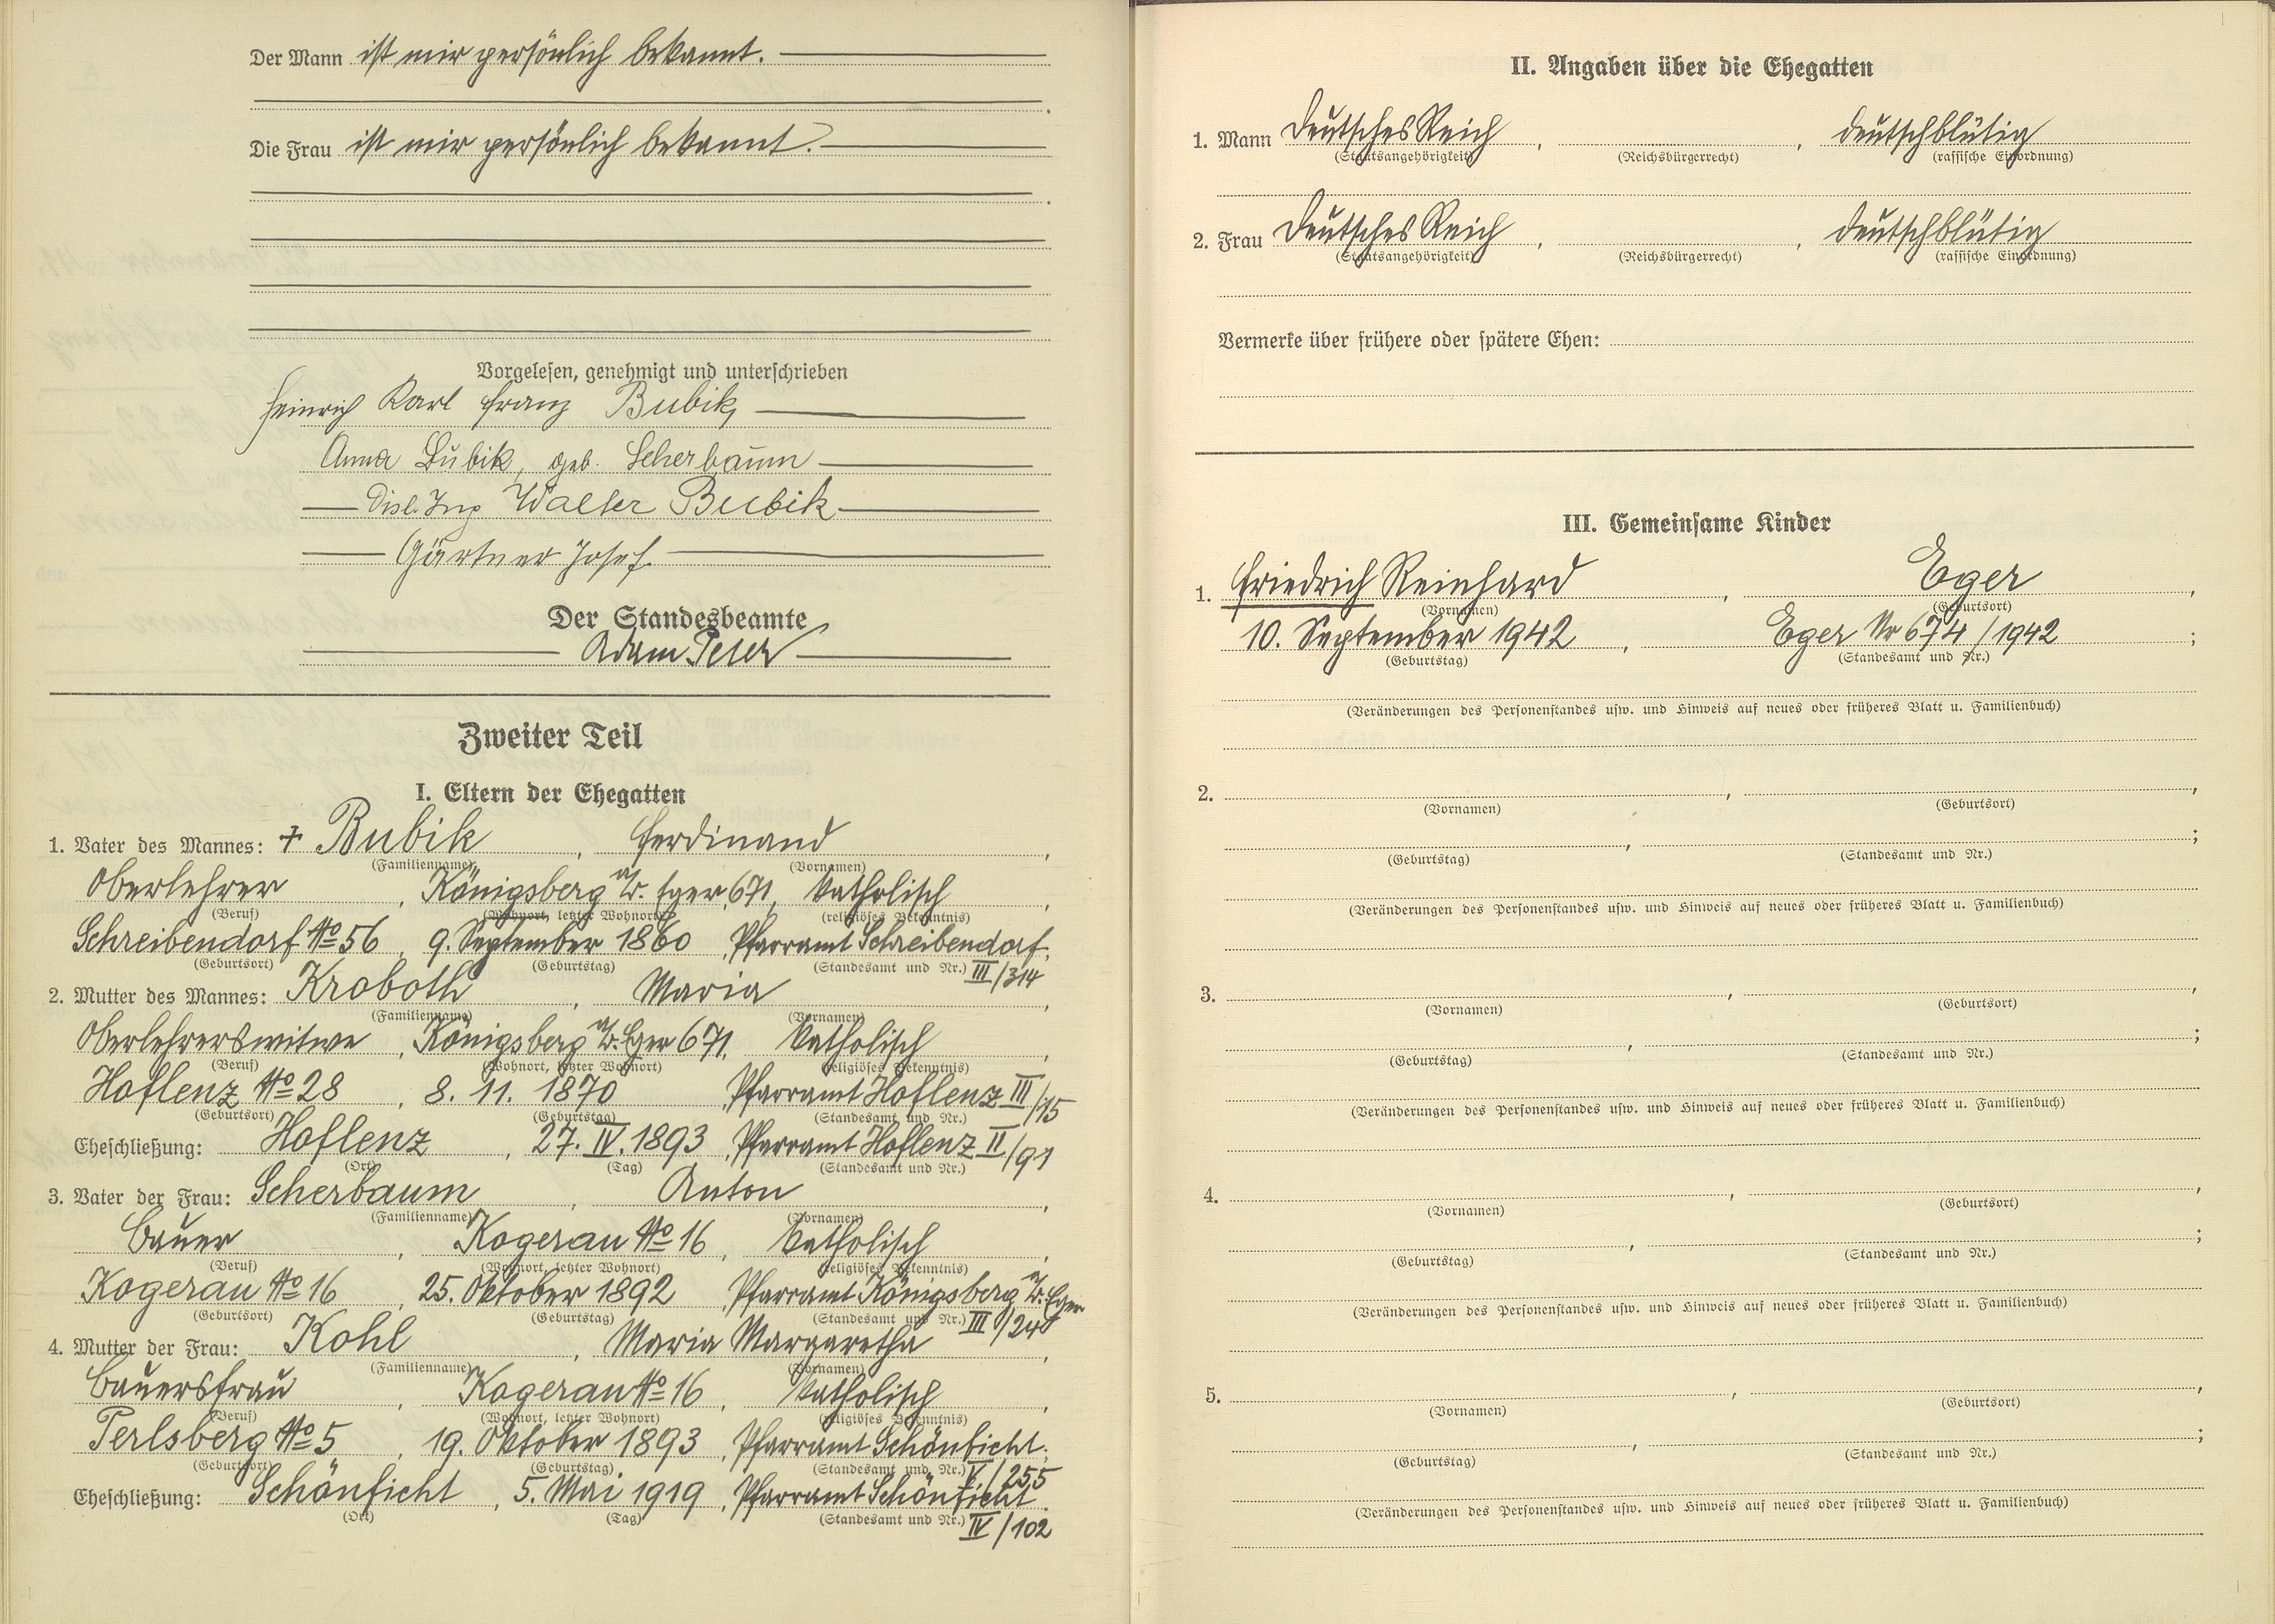 Der Mann ist mir persönlich bekannt.
Die Frau ist mir persönlich bekannt.
Vorgelesen, genehmigt und unterschrieben
Heinrich Karl Franz Bubik,
Anna Bubik, geb. Scherbaum
Dipl. Ing Walter Bubik
Gärtner Josef
Der Standesbeamte
Adam Peter
Zweiter Teil
I. Eltern der Ehegatten
1. Vater des Mannes: + Bubik, Ferdinand,
(Familienname) (Vornamen)
Oberlehrer, Königsberg a/d. Eger, 671, katholisch,
(Beruf) (Wohnort, letzter Wohnort) (religiöses Bekenntnis)
Schreibendorf No 56, 9. September 1860, Pfarramt Schreibendorf.
(Geburtsort) (Geburtstag) (Standesamt und Nr.) III/314
2. Mutter des Mannes: Kroboth, Maria,
(Familienname) (Vornamen)
Oberlehrerswitwe, Königsberg a/d. Eger 671, katholisch,
(Beruf) (Wohnort, letzter Wohnort) (religiöses Bekenntnis)
Hoflenz No 28, 8. 11. 1870 Pfarramt Hoflenz III/15
(Geburtsort) (Geburtstag) (Standesamt und Nr.)
Eheschließung: Hoflenz, 27. IV. 1893, Pfarramt Hoflenz II/91
(Ort) (Tag) (Standesamt und Nr.)
3. Vater der Frau: Scherbaum, Anton,
(Familienname) (Vornamen)
Bauer, Kogerau No 16, katholisch,
(Beruf) (Wohnort, letzter Wohnort) (religiöses Bekenntnis)
Kogerau No 16, 25. Oktober 1892, Pfarramt Königsberg a/d. Eger
(Geburtsort) (Geburtstag) (Standesamt und Nr.) III/248
4. Mutter der Frau: Kohl, Maria Margaretha,
(Familienname) (Vornamen)
Bauersfrau, Kogerau No 16, katholisch,
(Beruf) (Wohnort, letzter Wohnort) (religiöses Bekenntnis)
Perlsberg No 5, 19. Oktober 1893, Pfarramt Schönficht.
(Geburtsort) (Geburtstag) (Standesamt und Nr.) V./255
Eheschließung: Schönficht, 5. Mai 1919, Pfarramt Schönficht.
(Ort) (Tag) (Standesamt und Nr.) IV/102
II. Angaben über die Ehegatten
1. Mann Deutsches Reich, , deutschblütig
(Staatsangehörigkeit) (Reichsbürgerrecht) (rassische Einordnung)
2. Frau Deutsches Reich, , deutschblütig
(Staatsangehörigkeit) (Reichsbürgerrecht) (rassische Einordnung)
Vermerke über frühere oder spätere Ehen:
III. Gemeinsame Kinder
1. Friedrich Reinhard, Eger,
(Vornamen) (Geburtsort)
10. September 1942, Eger Nr 674/1942;
(Geburtstag) (Standesamt und Nr.)
(Veränderungen des Personenstandes usw. und Hinweis auf neues oder früheres Blatt u. Familienbuch)
2. , ,
(Vornamen) (Geburtsort)
, ;
(Geburtstag) (Standesamt und Nr.)
(Veränderungen des Personenstandes usw. und Hinweis auf neues oder früheres Blatt u. Familienbuch)
3. , ,
(Vornamen) (Geburtsort)
, ;
(Geburtstag) (Standesamt und Nr.)
(Veränderungen des Personenstandes usw. und Hinweis auf neues oder früheres Blatt u. Familienbuch)
4. , ,
(Vornamen) (Geburtsort)
, ;
(Geburtstag) (Standesamt und Nr.)
(Veränderungen des Personenstandes usw. und Hinweis auf neues oder früheres Blatt u. Familienbuch)
5. , ,
(Vornamen) (Geburtsort)
, ;
(Geburtstag) (Standesamt und Nr.)
(Veränderungen des Personenstandes usw. und Hinweis auf neues oder früheres Blatt u. Familienbuch)